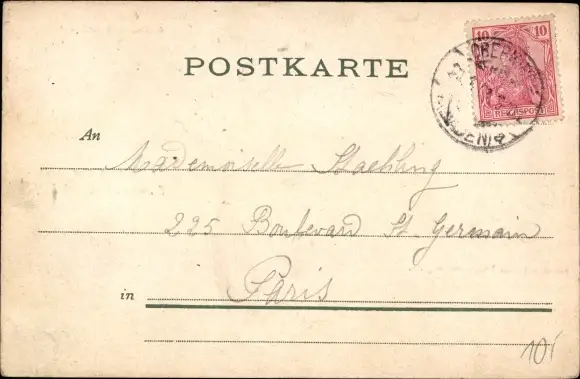 10 10
REICHSPOST
POSTKARTE
An
Mademoiselle Staehling
225 Boulevard St Germain
in Paris
10